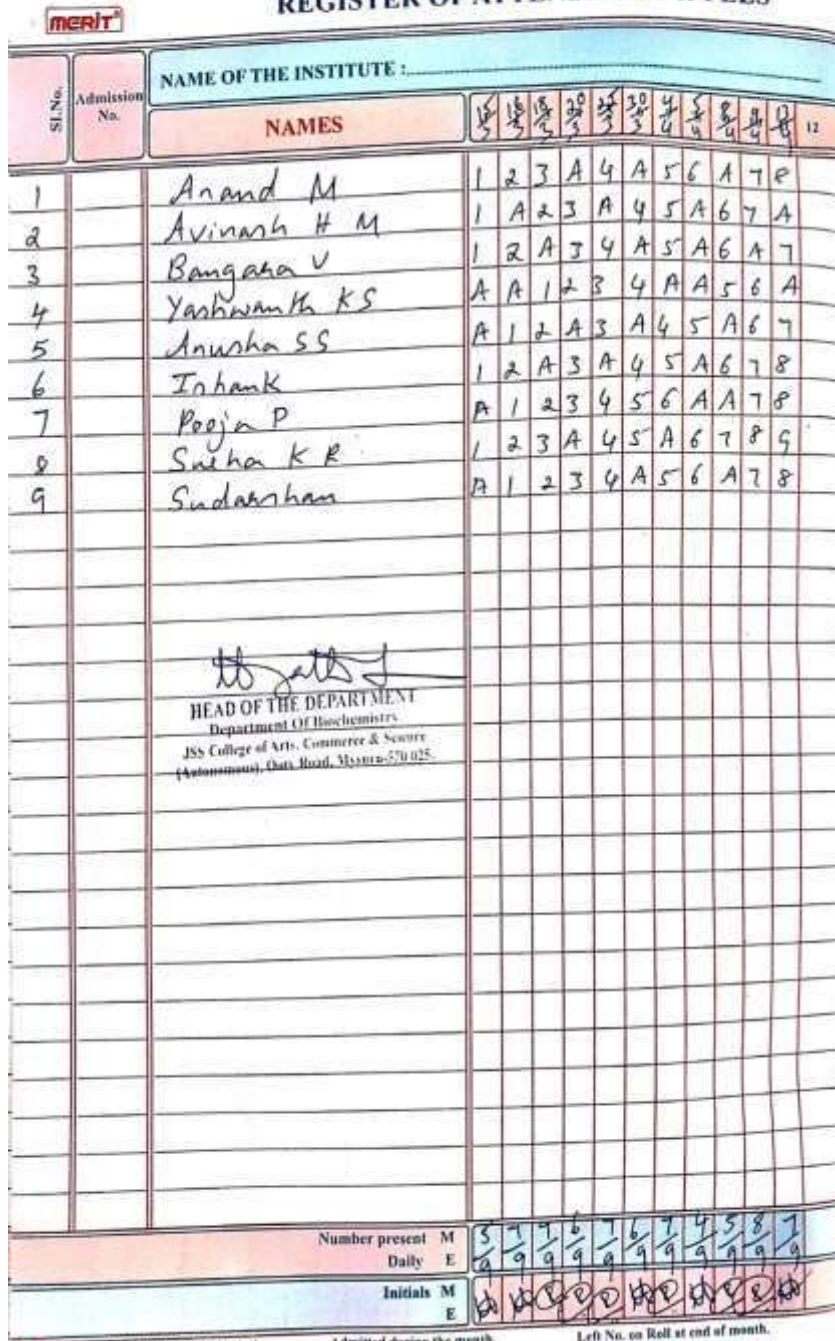 MERIT
NAME OF THE INSTITUTE :
Sl.No. Admission No. NAMES 15/3 16/3 18/3 20/3 25/3 30/3 4/4 5/4 8/4 9/4 12
1 Anand M 1 2 3 A 4 A 5 6 A 7 8
2 Avinash H M 1 A 2 3 A 4 5 A 6 7 A
3 Bangara V 1 2 A 3 4 A 5 A 6 A 7
4 Yashwanth KS A A 1 2 3 4 A A 5 6 A
5 Anusha SS A 1 2 A 3 A 4 5 A 6 7
6 Ishank 1 2 A 3 A 4 5 A 6 7 8
7 Pooja P A 1 2 3 4 5 6 A A 7 8
8 Sneha K R 1 2 3 A 4 5 A 6 7 8 9
9 Sudarshan A 1 2 3 4 A 5 6 A 7 8
HEAD OF THE DEPARTMENT
Department Of Biochemistry
JSS College of Arts, Commerce & Science
(Autonomous), Ooty Road, Mysuru-570 025.
Number present M
Daily E
5/9 7/9 7/9 6/9 7/9 6/9 7/9 4/9 5/9 8/9 7/9
Initials M
E
Admitted during the month.
Left No. on Roll at end of month.